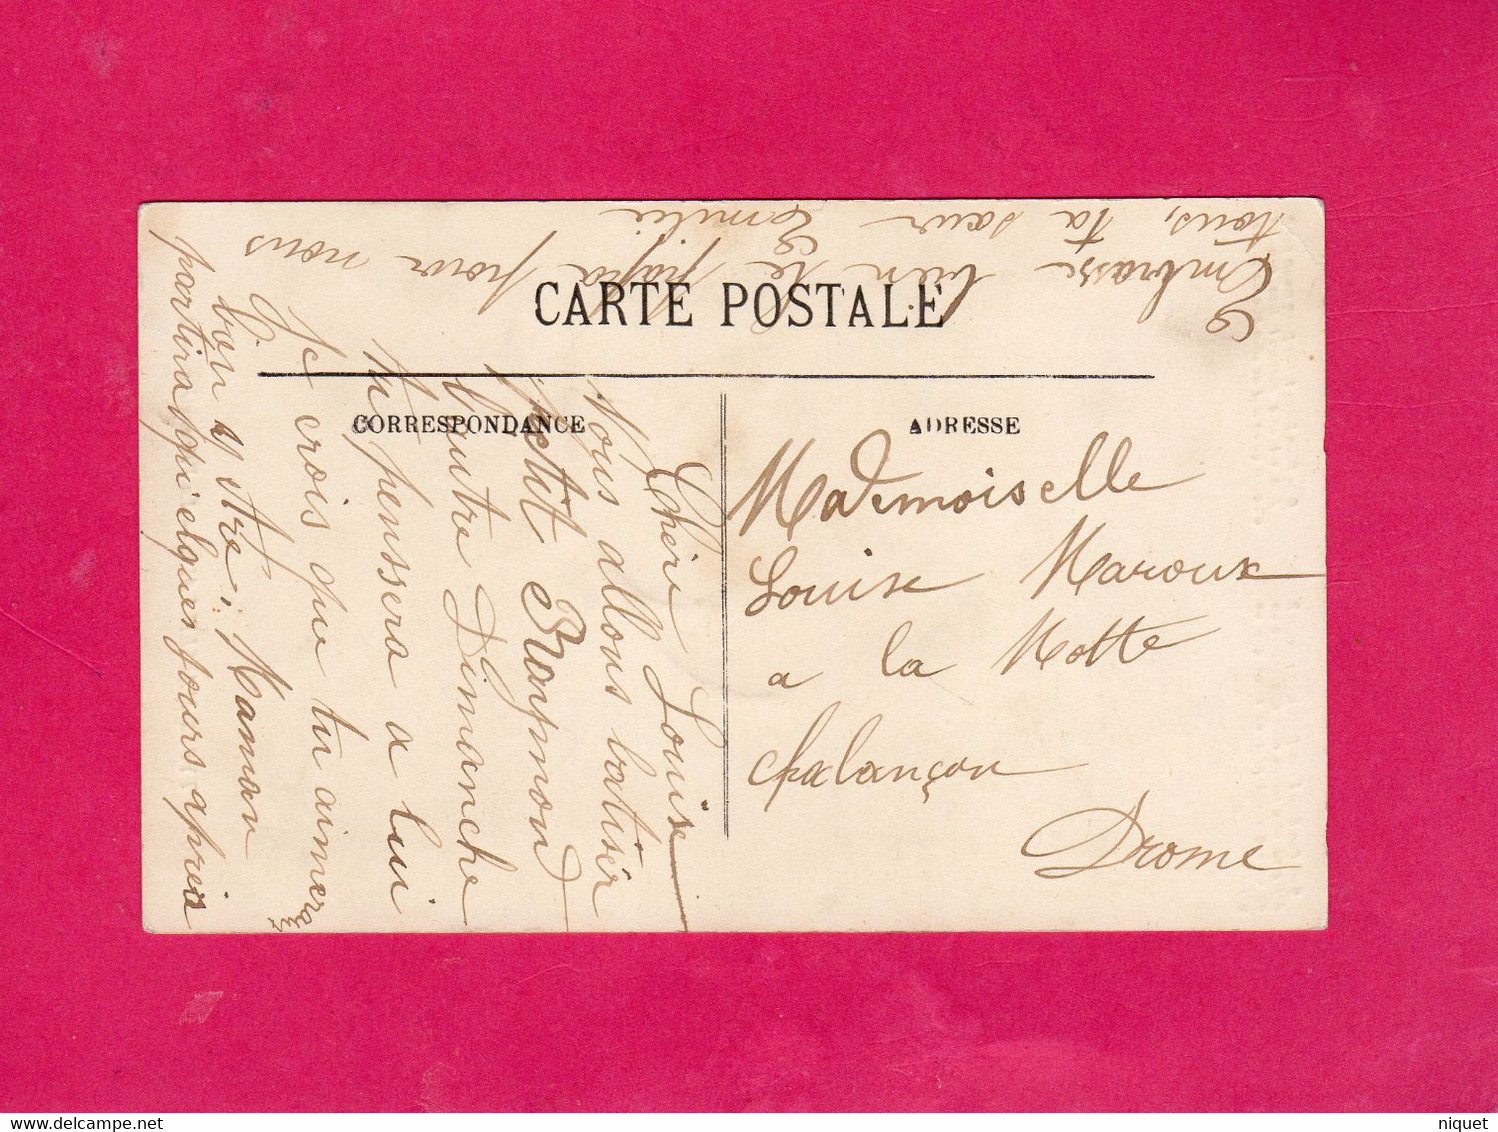 CARTE POSTALE
CORRESPONDANCE
ADRESSE
Chère Louise
Nous allons batiser
petit Raymond
l'autre Dimanche
tu penssera a lui
Je crois que tu aimera
bon y être, Maman
partira quelques jours après
Embrasse bien le papa pour nous
tous, ta sœur Emilie
Mademoiselle
Louise Maroux
a la Motte
Chalançon
Drome
www.delcampe.net
niquet